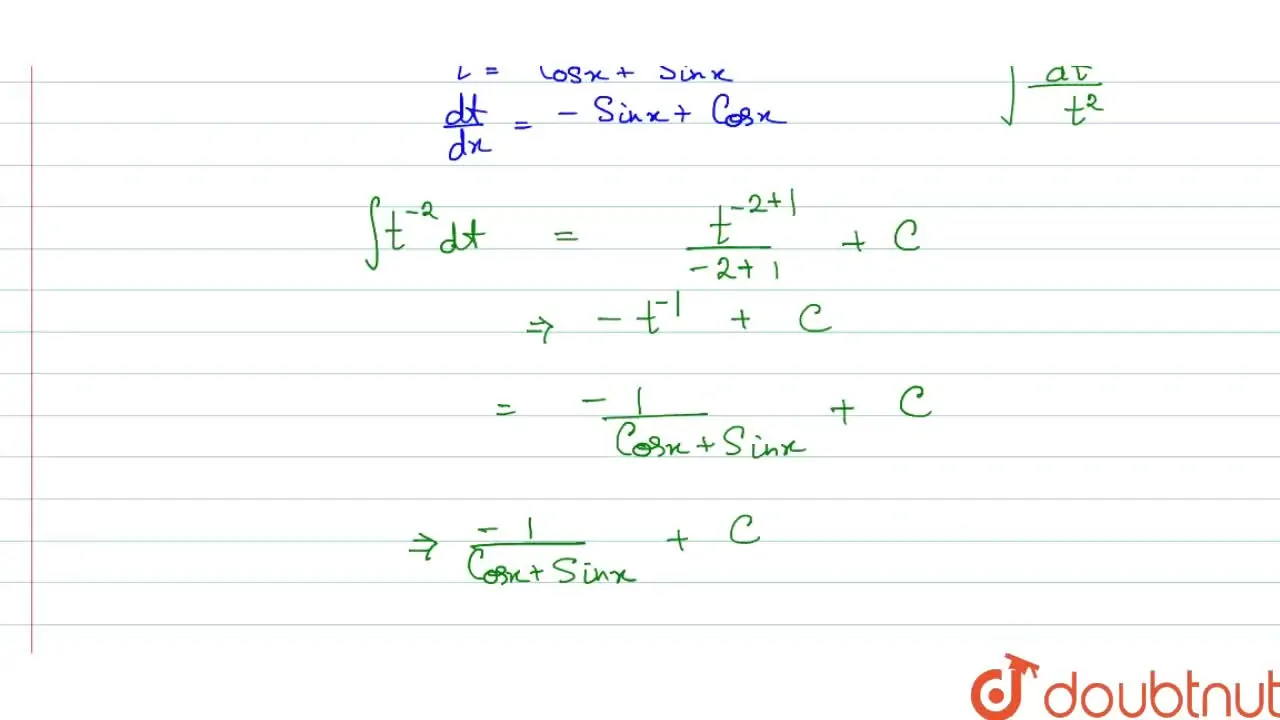 t = Cosx + Sinx
∫ dt / t²
dt/dx = - Sinx + Cosx
∫ t⁻² dt = t⁻²⁺¹ / -2+1 + C
⇒ - t⁻¹ + C
= - 1 / Cosx + Sinx + C
⇒ - 1 / Cosx + Sinx + C
doubtnut